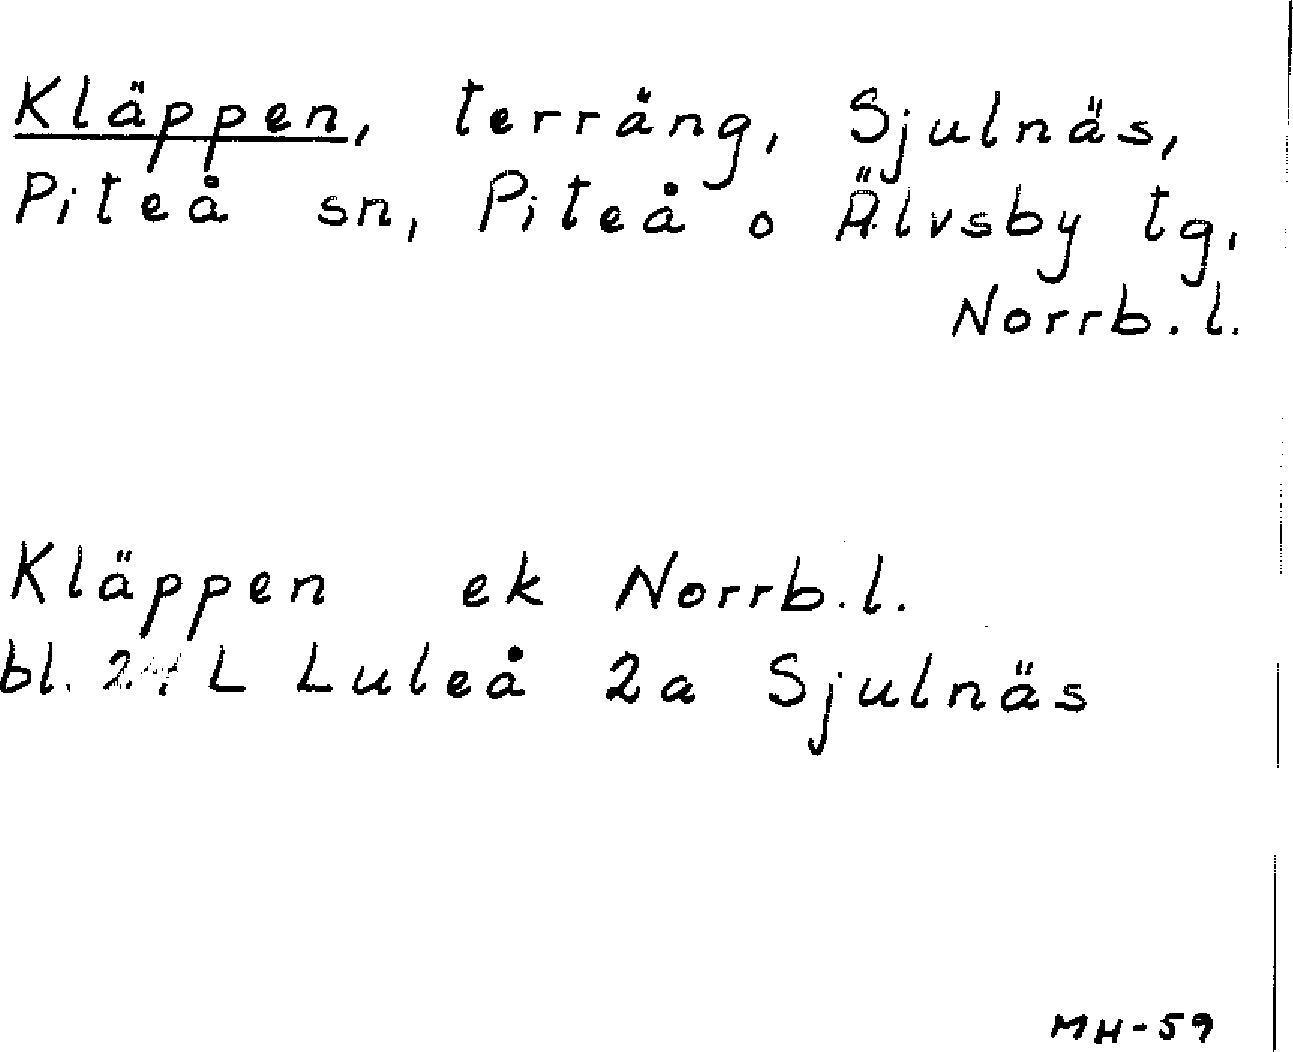 Kläppen, terräng, Sjulnäs,
Piteå sn, Piteå o Älvsby tg,
Norrb.l.
Kläppen ek Norrb.l.
bl. 24 L Luleå 2a Sjulnäs
MH-59